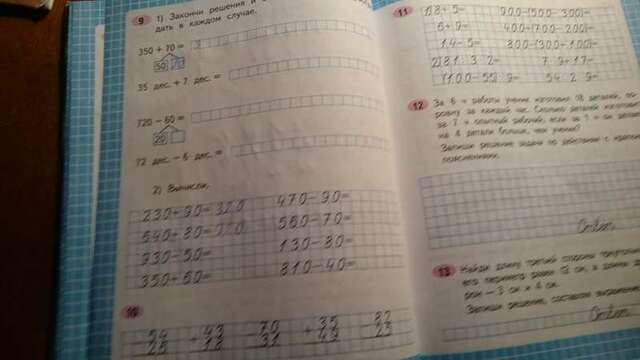 9 1) Закончи решения и
дать в каждом случае.
350 + 70 =
50 20
35 дес. + 7 дес. =
720 – 60 =
20
72 дес. – 6 дес. =
2) Вычисли.
230+90=320
540+80=
930-50=
350+60=
470-90=
560-70=
130-80=
810-40=
10
54
25
+ 43
18
- 70
31
+ 35
49
- 82
23
11
18:6=
6·9=
14·5=
900-(500-300)=
400+(700-200)=
800-(300+100)=
2)81:3·2=
(100-55):9=
7·9+17=
54:2·9=
12 За 6 ч работы ученик изготовил 18 деталей, по-
ровну за каждый час. Сколько деталей изготовит
за 7 ч опытный рабочий, если за 1 ч он делает
на 4 детали больше, чем ученик?
Запиши решение задачи по действиям с краткими
пояснениями.
Ответ:
13 Найди длину третьей стороны треугольника,
его периметр равен 12 см, а длины
рон — 3 см и 4 см.
Запиши решение, составив выражение.
Ответ: